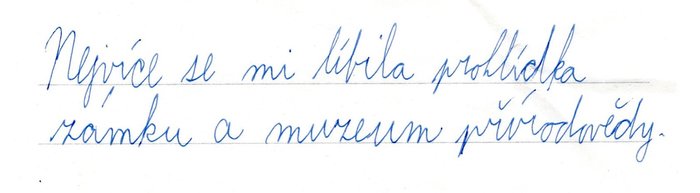 Nejvíce se mi líbila prohlídka
zámku a muzeum přírodovědy.